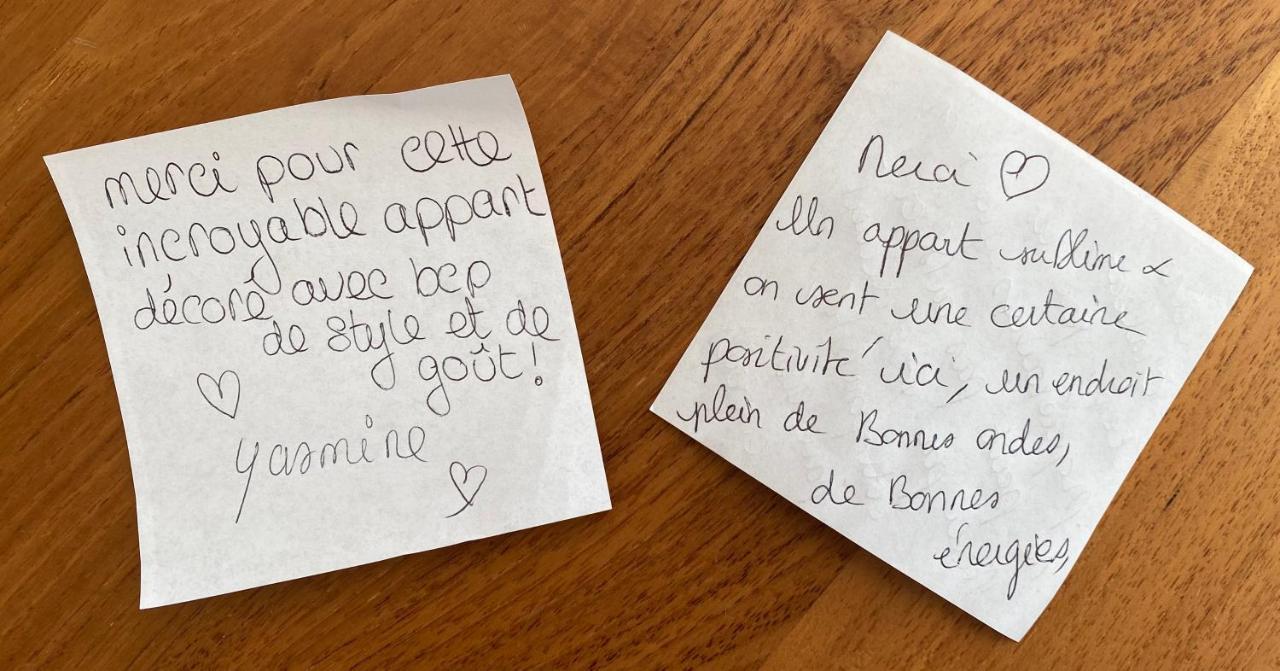 merci pour cette
incroyable appart
décoré avec bcp
de style et de
goût!
♡
Yasmine
♡
Merci ♡
Un appart sublime &
on sent une certaine
positivité ici, un endroit
plein de Bonnes ondes,
de Bonnes
énergies,